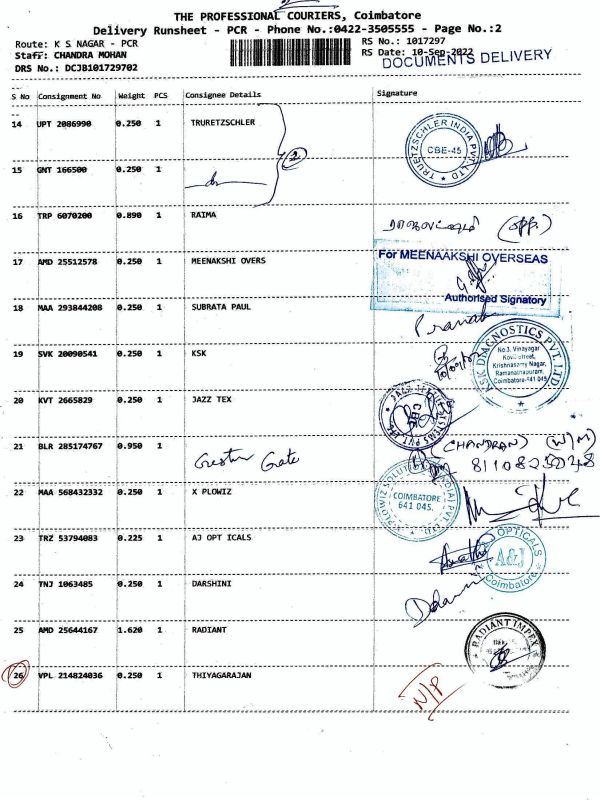 THE PROFESSIONAL COURIERS, Coimbatore
Delivery Runsheet - PCR - Phone No.:0422-3505555 - Page No.:2
Route: K S NAGAR - PCR
RS No.: 1017297
Staff: CHANDRA MOHAN
RS Date: 10-Sep-2022
DOCUMENTS DELIVERY
DRS No.: DCJB101729702
S No Consignment No Weight PCS Consignee Details Signature
14 UPT 2086990 0.250 1 TRURETZSCHLER
TRUETZSCHLER INDIA PVT. LTD
CBE-45
2
15 GNT 166500 0.250 1
16 TRP 6070200 0.890 1 RAIMA
17 AMD 25512578 0.250 1 MEENAKSHI OVERS
For MEENAAKSHI OVERSEAS
Authorised Signatory
18 MAA 293844208 0.250 1 SUBRATA PAUL
Pranab
19 SVK 20090541 0.250 1 KSK
KSK DIAGNOSTICS PVT. LTD
No.3, Vinayagar
Kovil Street,
Krishnasamy Nagar,
Ramanathapuram,
Coimbatore-641 045.
20 KVT 2665829 0.250 1 JAZZ TEX
CBE
21 BLR 285174767 0.950 1 Greater Grate
(CHANDRAN) (W/M)
22 MAA 568432332 0.250 1 X PLOWIZ
X PLOWIZ SOLUTIONS (INDIA) PVT. LTD.
COIMBATORE
641 045.
23 TRZ 53794083 0.225 1 AJ OPT ICALS
OPTICALS
A&J
Coimbatore
24 TNJ 1063485 0.250 1 DARSHINI
25 AMD 25644167 1.620 1 RADIANT
RADIANT IMPEX
26 VPL 214824036 0.250 1 THIYAGARAJAN
N/P